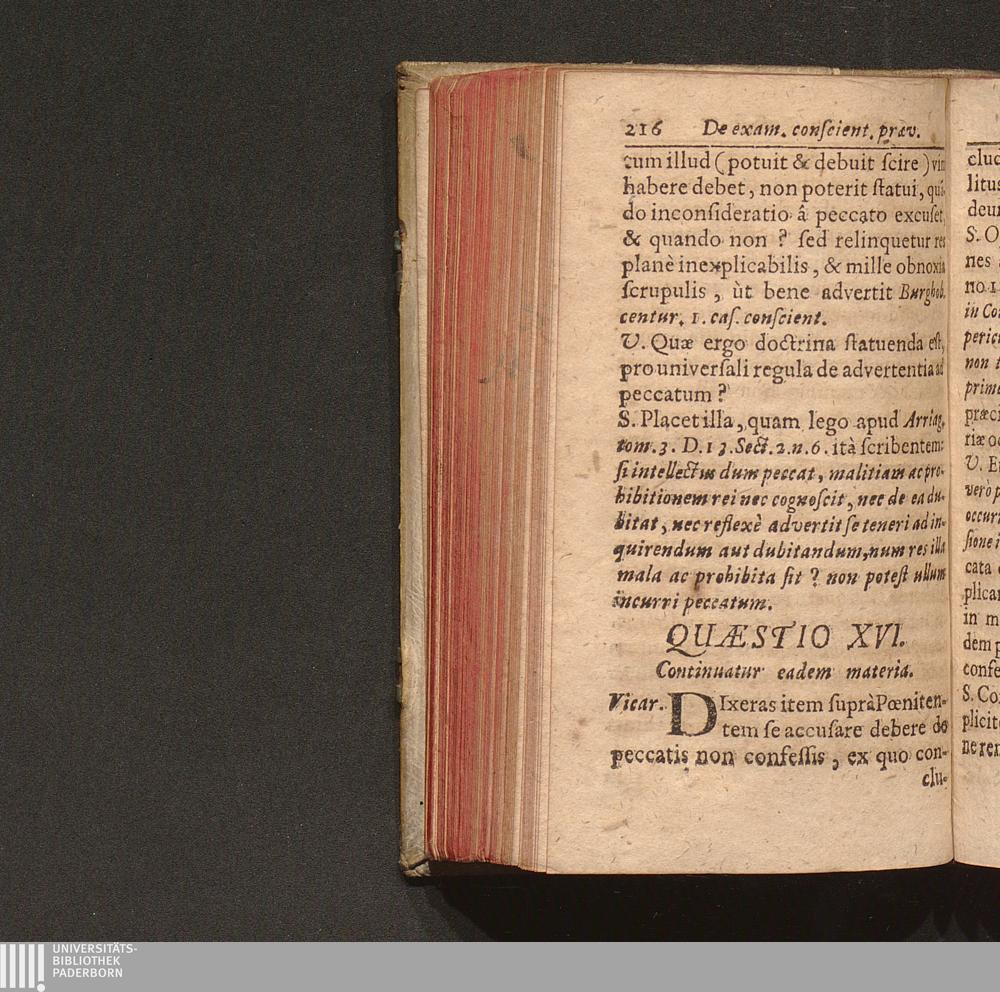 216 De exam. conſcient. præv.
tum illud (potuit & debuit ſcire) vim
habere debet, non poterit ſtatui, quã-
do inconſideratio â peccato excuſet,
& quando non ? ſed relinquetur res
planè inexplicabilis, & mille obnoxia
ſcrupulis, ùt bene advertit Burghob.
centur. 1. caſ. conſcient.
V. Quæ ergo doctrina ſtatuenda eſt,
pro univerſali regula de advertentia ad
peccatum ?
S. Placet illa, quam lego apud Arriag.
tom. 3. D. 13. Sect. 2. n. 6. ità ſcribentem:
ſi intellectus dum peccat, malitiam ac pro-
hibitionem rei nec cognoſcit, nec de ea du-
bitat, nec reflexè advertit ſe teneri ad in-
quirendum aut dubitandum, num res illa
mala ac prohibita ſit ? non poteſt ullum
incurri peccatum.
QUÆSTIO XVI.
Continuatur eadem materia.
Vicar. DIxeras item ſuprà Pœniten-
tem ſe accuſare debere de
peccatis non confeſſis, ex quo con-
clu-
clud
litus
deu
S. O
nes
no 1
in Co
peric
non
prim
præci
riæ
V. E
verò p
occur
ſione i
cata
plica
in m
dem p
confe
S. Co
plicit
ne re
UNIVERSITÄTS-
BIBLIOTHEK
PADERBORN